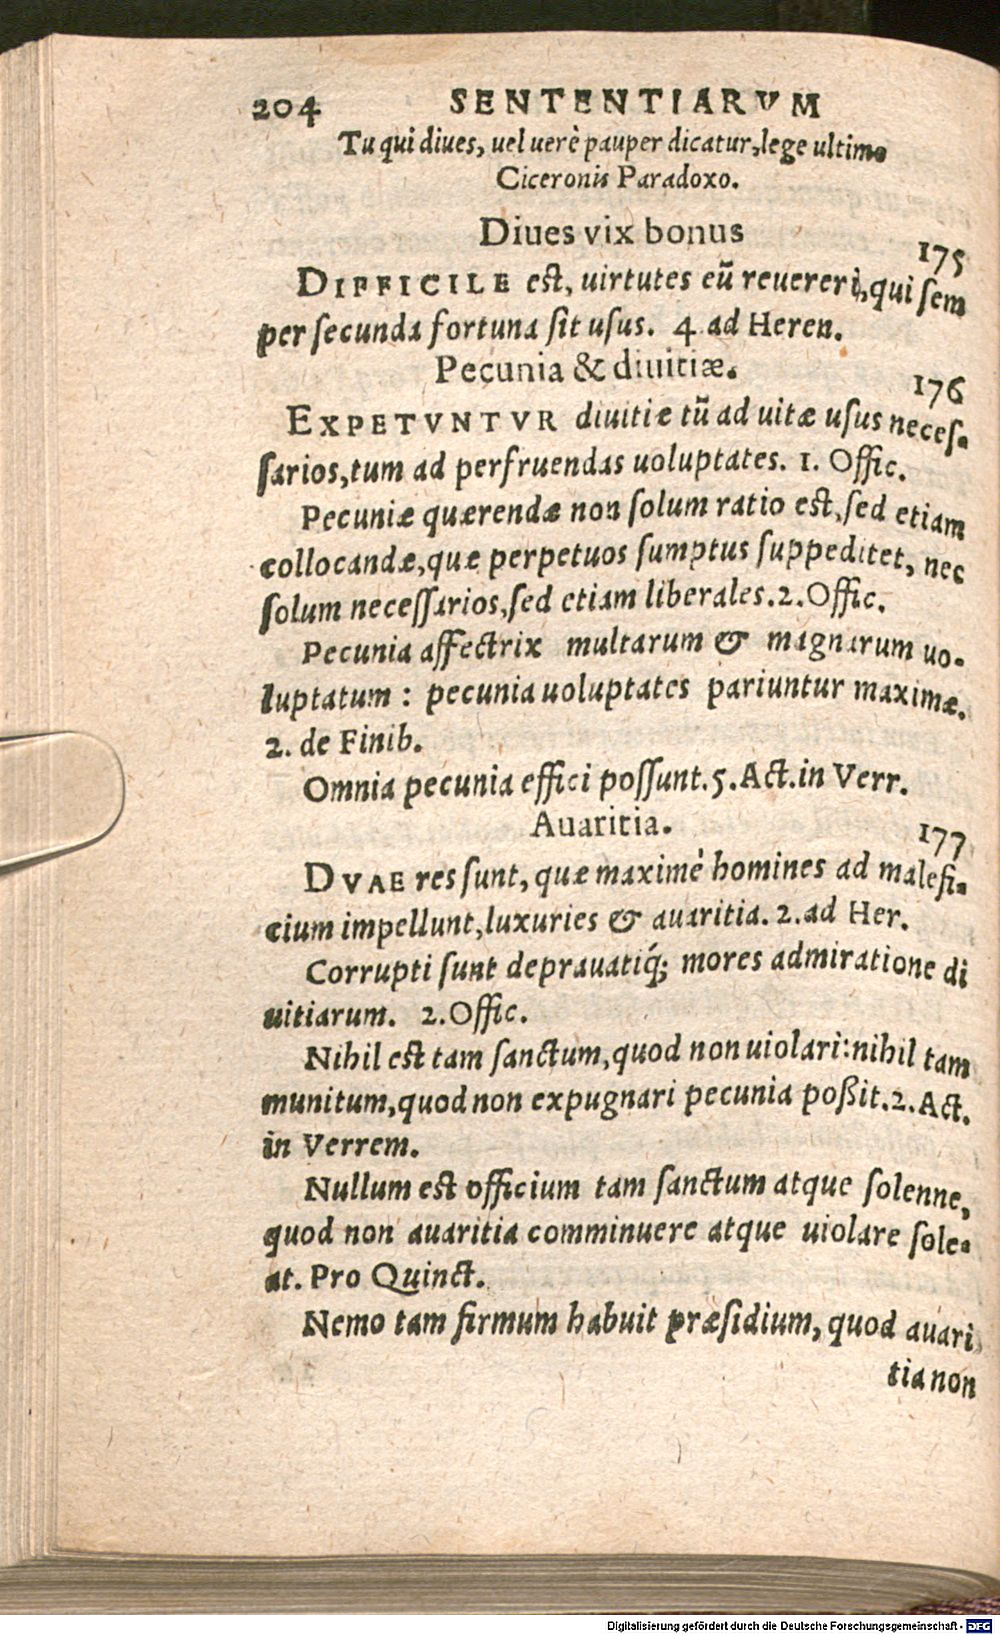 204 SENTENTIARVM
Tu qui diues, uel uerè pauper dicatur, lege ultimo
Ciceronis Paradoxo.
Diues vix bonus
175
DIFFICILE est, uirtutes eū reuereri, qui sem
per secunda fortuna sit usus. 4 ad Heren.
Pecunia & diuitiæ.
176
EXPETVNTVR diuitiæ tū ad uitæ usus neces-
sarios, tum ad perfruendas uoluptates. 1. Offic.
Pecuniæ quærendæ non solum ratio est, sed etiam
collocandæ, quæ perpetuos sumptus suppeditet, nec
solum necessarios, sed etiam liberales. 2. Offic.
Pecunia affectrix multarum & magnarum uo-
luptatum : pecunia uoluptates pariuntur maximæ.
2. de Finib.
Omnia pecunia effici possunt. 5. Act. in Verr.
Auaritia.
177
DVAE res sunt, quæ maximè homines ad malefi-
cium impellunt, luxuries & auaritia. 2. ad Her.
Corrupti sunt deprauatiq́; mores admiratione di
uitiarum. 2. Offic.
Nihil est tam sanctum, quod non uiolari: nihil tam
munitum, quod non expugnari pecunia poßit. 2. Act.
in Verrem.
Nullum est officium tam sanctum atque solenne,
quod non auaritia comminuere atque uiolare sole-
at. Pro Quinct.
Nemo tam firmum habuit præsidium, quod auari
tia non
Digitalisierung gefördert durch die Deutsche Forschungsgemeinschaft - DFG